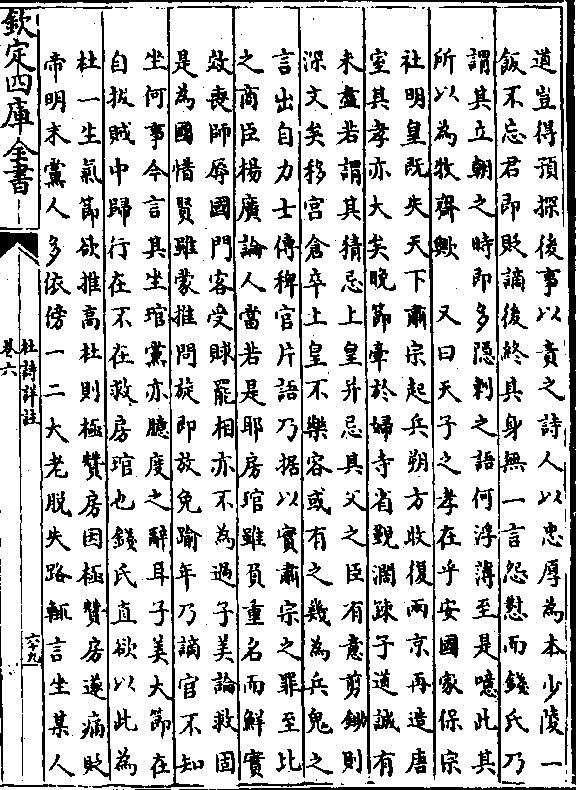 道豈得預探後事以責之詩人以忠厚為本少陵一
飯不忘君即貶謫後終其身無一言怨懟而錢氏乃
謂其立朝之時即多隱刺之語何浮薄至是噫此其
所以為牧齋歟　又曰天子之孝在乎安國家保宗
社明皇既失天下肅宗起兵朔方收復兩京再造唐
室其孝亦大矣晚節牽於婦寺省覲濶疎子道誠有
未盡若謂其猜忌上皇并忌其父之臣有意剪鋤則
深文矣移宮倉卒上皇不樂容或有之幾為兵鬼之
言出自力士傳稗官片語乃据以實肅宗之罪至比
之商臣楊廣論人當若是耶房琯雖負重名而鮮實
效喪師辱國門客受賕罷相亦不為過子美論救固
是為國惜賢雖蒙推問旋即放免踰年乃謫官不知
坐何事今言其坐琯黨亦臆度之辭耳子美大節在
自拔賊中歸行在不在救房琯也錢氏直欲以此為
杜一生氣節欲推高杜則極贊房因極贊房遂痛貶
帝明末黨人多依傍一二大老脱失路輒言坐某人
欽定四庫全書
杜詩詳註
卷六
六十九